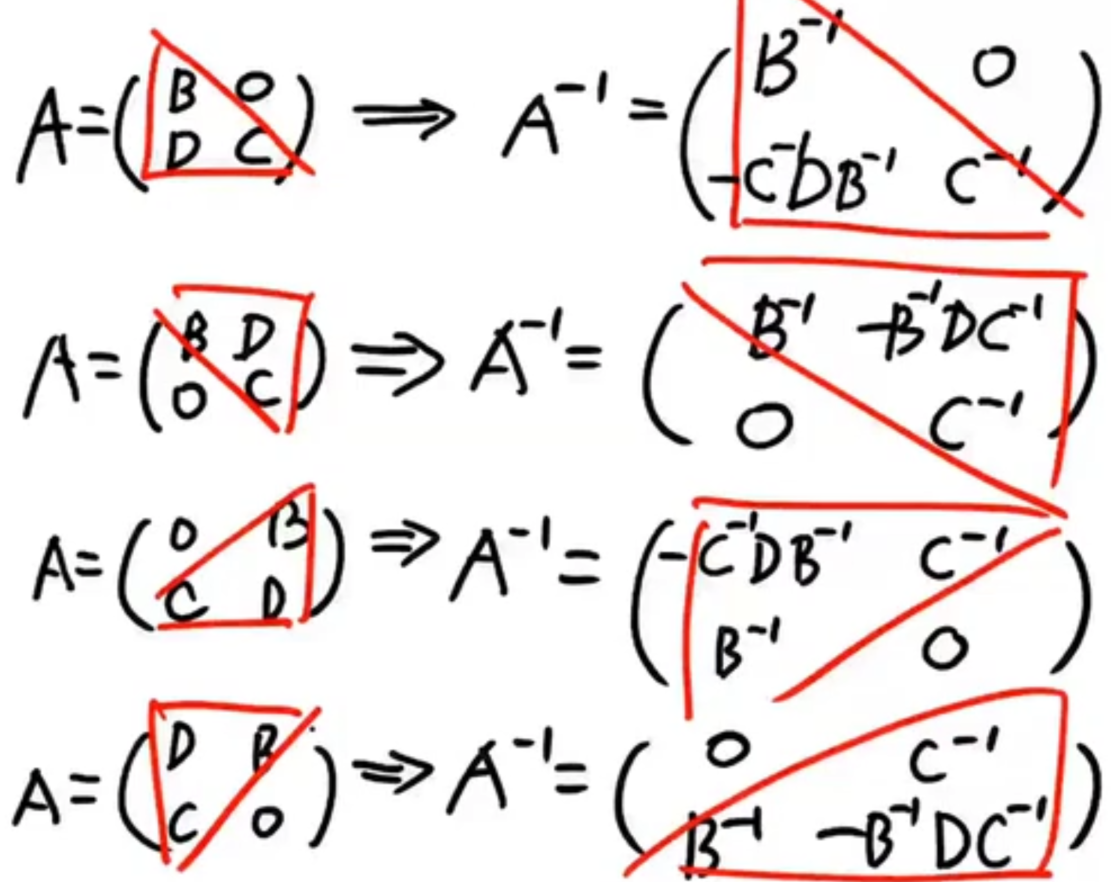 A=(B O D C) ⟹ A⁻¹=(B⁻¹ O -C⁻¹DB⁻¹ C⁻¹)
A=(B D O C) ⟹ A⁻¹=(B⁻¹ -B⁻¹DC⁻¹ O C⁻¹)
A=(O B C D) ⟹ A⁻¹=(-C⁻¹DB⁻¹ C⁻¹ B⁻¹ O)
A=(D B C O) ⟹ A⁻¹=(O C⁻¹ B⁻¹ -B⁻¹DC⁻¹)